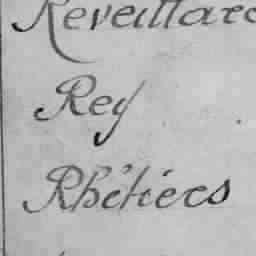 Réveillard
Rey
Rhétiers